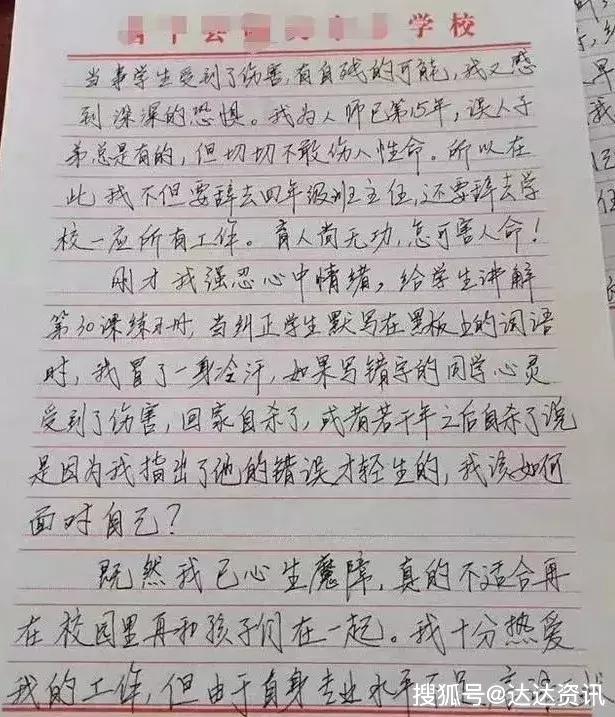 学校
当事学生受到了伤害,有自残的可能,我又感
到深深的恐惧。我为人师已第15年,误人子
弟总是有的,但切切不敢伤人性命。所以在
此我不但要辞去四年级班主任,还要辞去学
校一应所有工作。育人尚无功,怎可害人命!
刚才我强忍心中情绪,给学生讲解
第30课练习时,当纠正学生默写在黑板上的词语
时,我冒了一身冷汗,如果写错字的同学心灵
受到了伤害,回家自杀了,或者若干年之后自杀了说
是因为我指出了他的错误才轻生的,我该如何
面对自己?
既然我已心生魔障,真的不适合再
在校园里再和孩子们在一起。我十分热爱
我的工作,但由于自身专业水平不足,
搜狐号@达达资讯